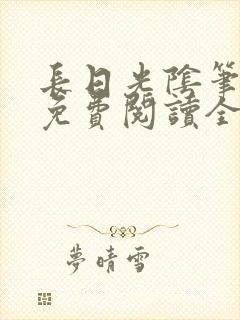 長日光陰筆
免費閱讀全
夢晴雪